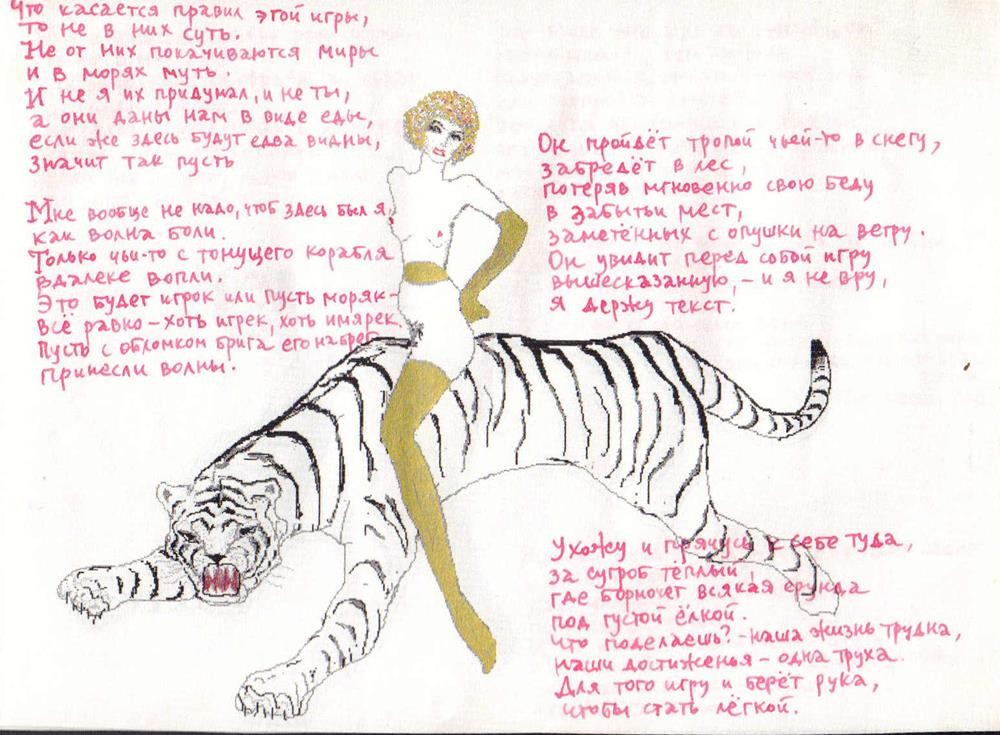 Что касается правил этой игры,
то не в них суть.
Не от них покачиваются миры
и в морях муть.
И не я их придумал, и не ты,
а они даны нам в виде еды,
если же здесь будут едва видны,
значит так пусть
Мне вообще не надо, чтоб здесь был я,
как волна боли.
Только чьи-то с тонущего корабля
вдалеке вопли.
Это будет игрок или пусть моряк-
всё равно - хоть игрек, хоть имярек.
Пусть с обломком брига его на брег
принесли волны.
Он пройдёт тропой чьей-то в снегу,
забредёт в лес,
потеряв мгновенно свою беду
в забытьи мест,
заметённых с опушки на ветру.
Он увидит перед собой игру
вышесказанную, - и я не вру,
я держу текст.
Ухожу и прячусь к себе туда,
за сугроб тёплый,
где бормочет всякая ерунда
под густой ёлкой.
Что поделаешь? - наша жизнь трудна,
наши достиженья - одна труха.
Для того игру и берёт рука,
чтобы стать лёгкой.